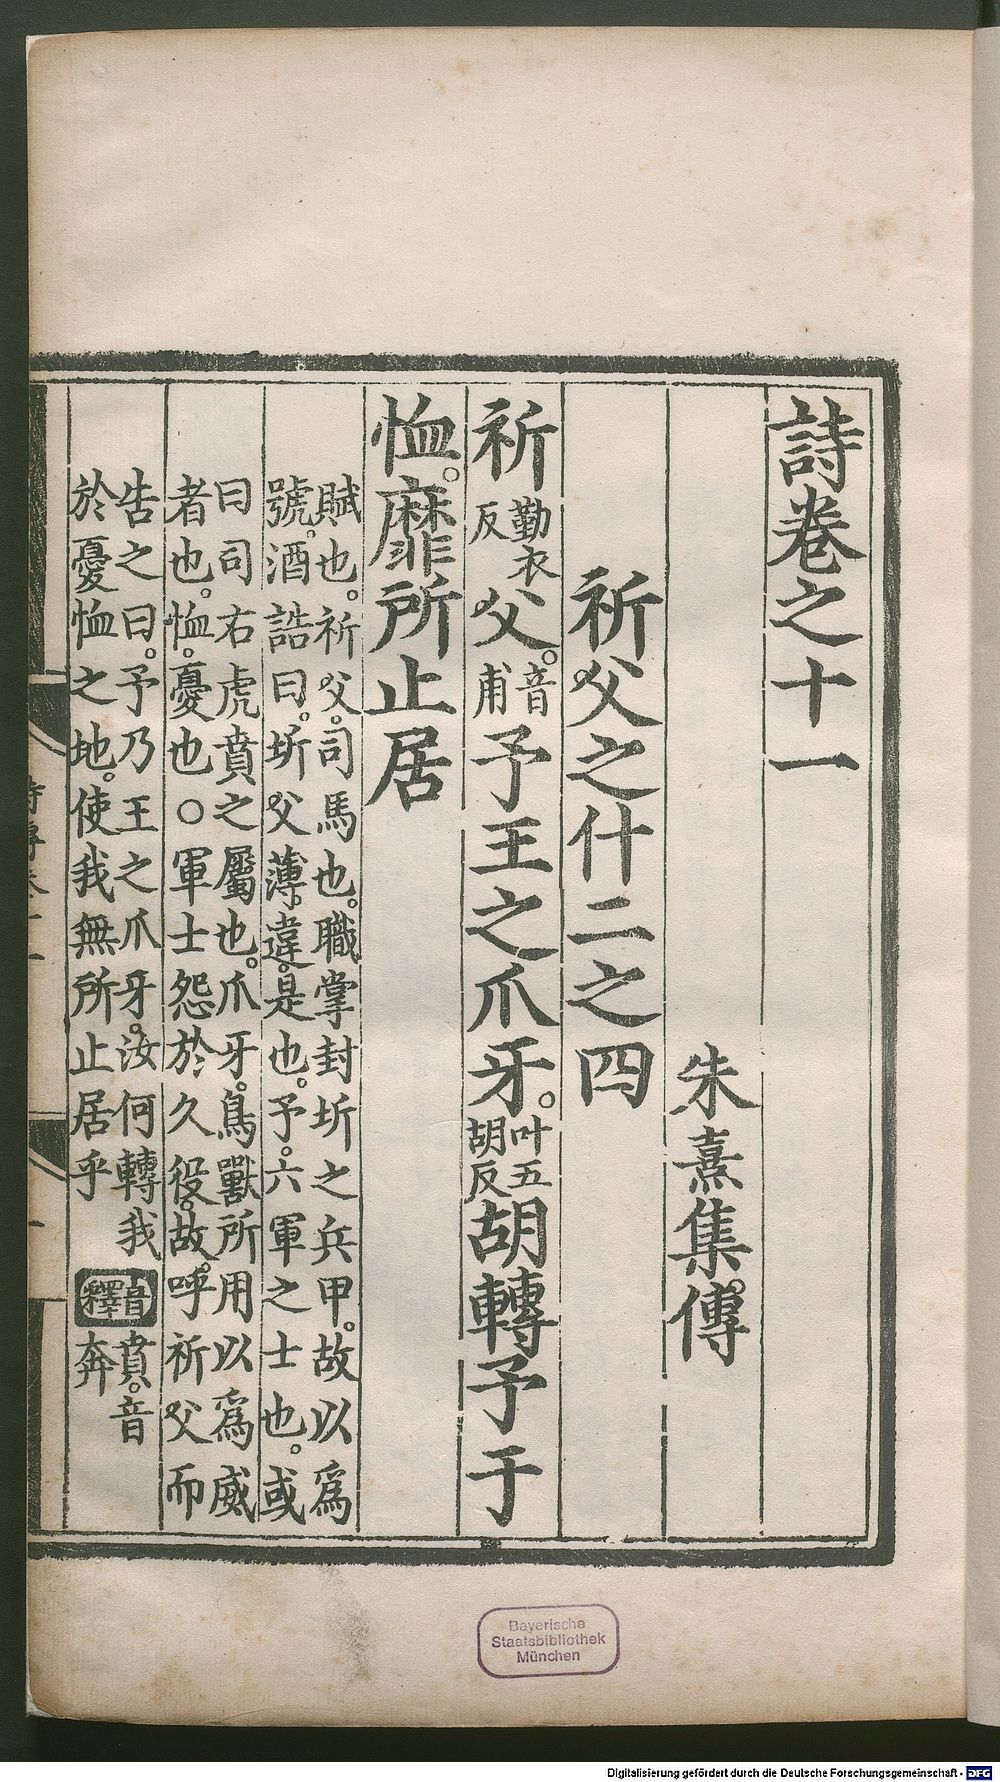 詩卷之十一
朱熹集傳
祈父之什二之四
祈勤衣反父。音甫予王之爪牙。叶五胡反胡轉予于
恤。靡所止居
賦也。祈父。司馬也。職掌封圻之兵甲。故以爲
號。酒誥曰。圻父薄違。是也。予。六軍之士也。或
曰司右虎賁之屬也。爪牙。鳥獸所用以爲威
者也。恤。憂也○軍士怨於久役。故呼祈父而
告之曰。予乃王之爪牙。汝何轉我
於憂恤之地。使我無所止居乎
音釋
賁。音
奔
Bayerische
Staatsbibliothek
München
Digitalisierung gefördert durch die Deutsche Forschungsgemeinschaft - DFG